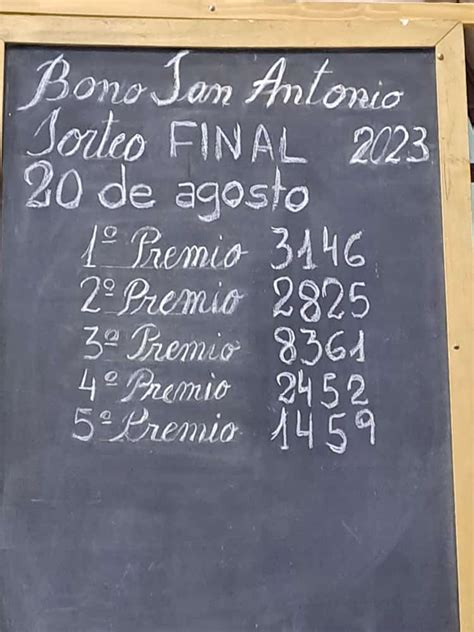 Bono San Antonio
Sorteo FINAL 2023
20 de agosto
1º Premio 3146
2º Premio 2825
3º Premio 8361
4º Premio 2452
5º Premio 1459